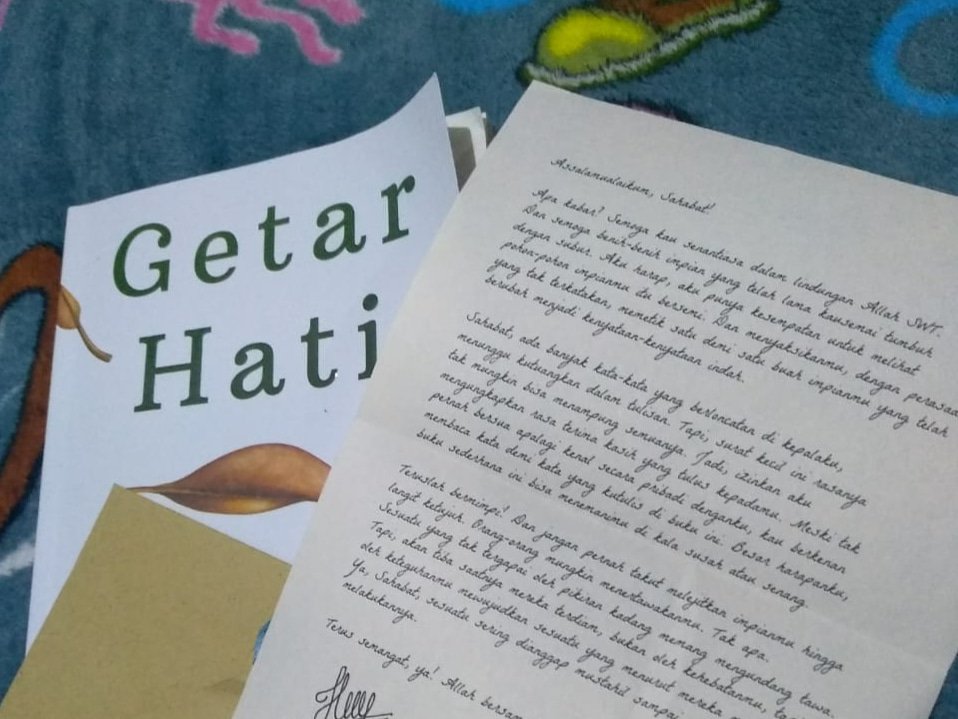 Getar
Hati
Assalamualaikum, Sahabat!
Apa kabar? Semoga kau senantiasa dalam lindungan Allah SWT.
Dan semoga benih-benih impian yang telah lama kausemai tumbuh
dengan subur. Aku harap, aku punya kesempatan untuk melihat
pohon-pohon impianmu itu bersemi. Dan menyaksikanmu, dengan perasaan
yang tak terkatakan, memetik satu demi satu buah impianmu yang telah
berubah menjadi kenyataan-kenyataan indah.
Sahabat, ada banyak kata-kata yang berloncatan di kepalaku,
menunggu kutuangkan dalam tulisan. Tapi, surat kecil ini rasanya
tak mungkin bisa menampung semuanya. Jadi, izinkan aku
mengungkapkan rasa terima kasih yang tulus kepadamu. Meski tak
pernah bersua apalagi kenal secara pribadi denganku, kau berkenan
membaca kata demi kata yang kutulis di buku ini. Besar harapanku,
buku sederhana ini bisa menemanimu di kala susah atau senang.
Teruslah bermimpi! Dan jangan pernah takut melejitkan impianmu hingga
langit ketujuh. Orang-orang mungkin menertawakanmu. Tak apa.
Sesuatu yang tak tergapai oleh pikiran kadang memang mengundang tawa.
Tapi, akan tiba saatnya mereka terdiam, bukan oleh kehebatanmu,
oleh keteguhanmu mewujudkan sesuatu yang menurut mereka
Ya, Sahabat, sesuatu sering dianggap mustahil sampai
melakukannya.
Terus semangat, ya! Allah